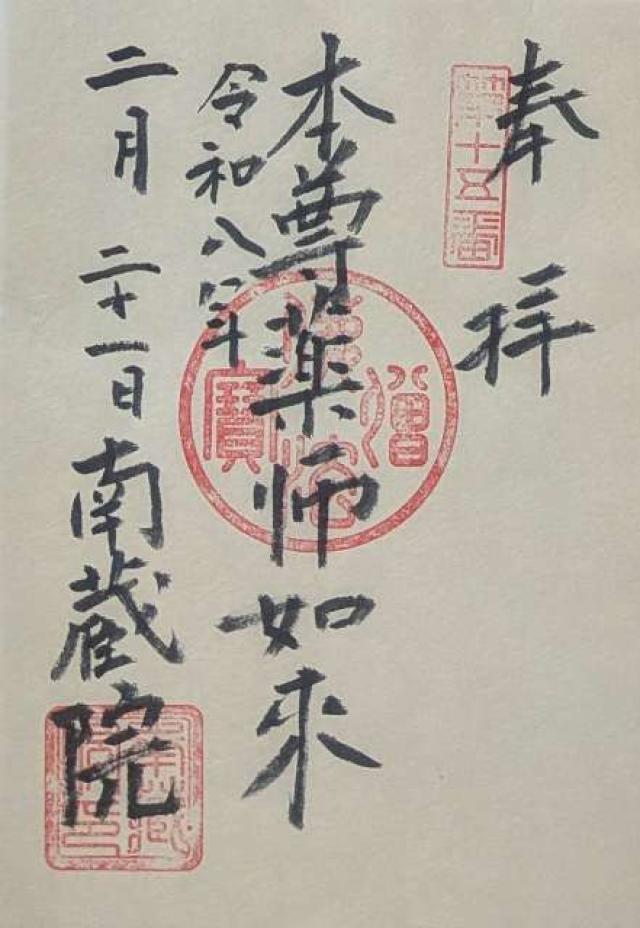 奉拝
第十五番
本尊薬師如来
令和八年
二月二十一日
南蔵院
佛法僧寶